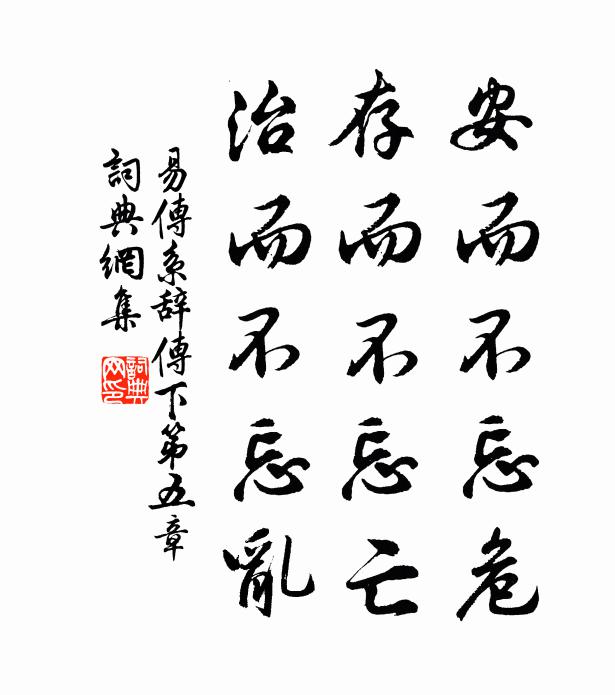 安而不忘危
存而不忘亡
治而不忘亂
易傳系辞傳下第五章
詞典網集
詞典網印